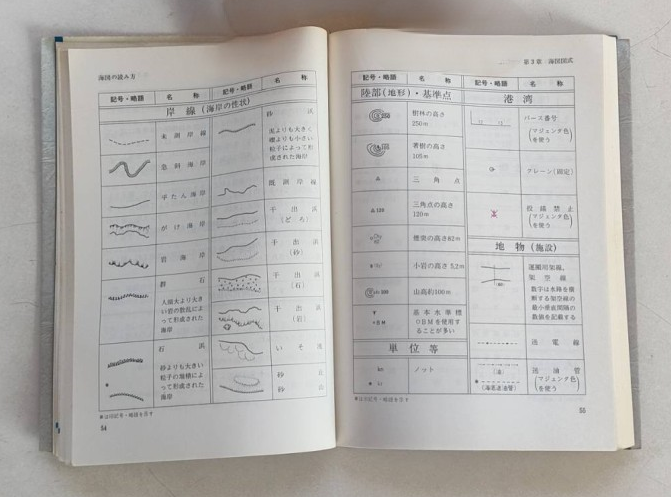 海図の読み方
記号・略語 名称 記号・略語 名称
岸線（海岸の性状）
未測岸線
急斜海岸
平たん海岸
がけ海岸
岩海岸
群石
人頭大より大き
い岩の散乱によ
って形成された
海岸
石浜
砂よりも大きい
粒子の堆積によ
って形成された
海岸
砂浜
泥よりも大きく
礫よりも小さい
粒子によって形
成された海岸
既測岸線
干出浜
（どろ）
干出浜
（砂）
干出浜
（石）
干出浜
（岩）
いそ波
砂丘
砂山
※は旧記号・略語を示す
54
第3章 海図図式
記号・略語 名称 記号・略語 名称
陸部（地形）・基準点
樹林の高さ
250m
著樹の高さ
105m
三角点
三角点の高さ
120m
120
煙突の高さ82m
小岩の高さ5.2m
山高約100m
基本水準標
○BMを使用す
ることが多い
BM
単位等
kn
ノット
港湾
バース番号
（マジェンタ色）
を使う
クレーン（固定）
投錨禁止
（マジェンタ色）
を使う
地物（施設）
運搬用架線，
架空線
数字は水路を横
断する架空線の
最小垂直間隔の
数値を記載する
送電線
送油管
（マジェンタ色）
を使う
（油）
（海底送油管）
※は旧記号・略語を示す
55